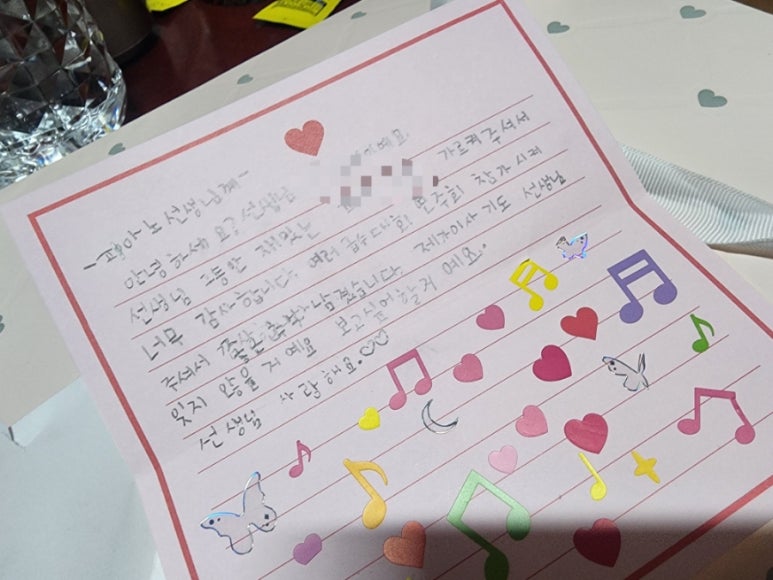 -피아노 선생님께-
안녕하세요? 선생님 이예요
선생님 그동안 재밌는 가르켜주셔서
너무 감사합니다. 여러 급수대회 연주회 참가시켜
주셔서 좋은 추억 남겼습니다 제가 이사가도 선생님
잊지 않을 거예요 보고싶어 할거예요.
선생님 사랑해요.♡♡